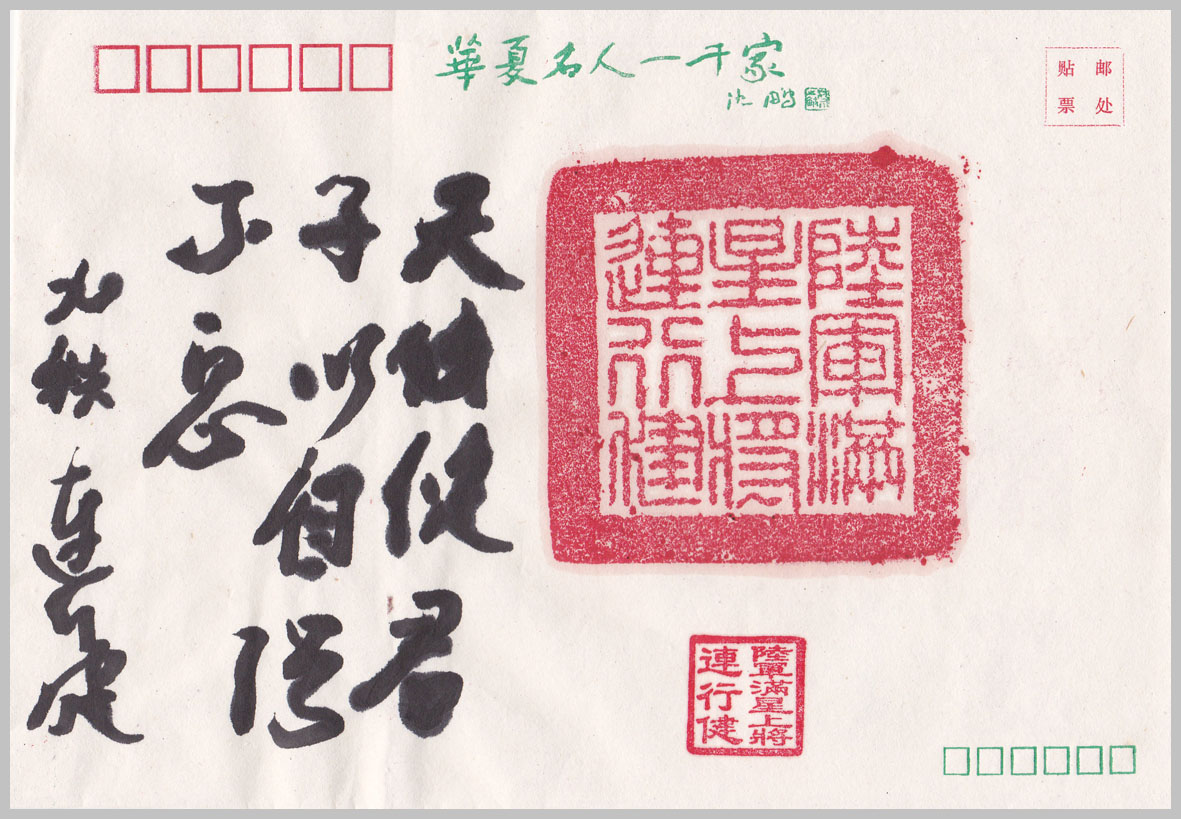 華夏名人一千家
沈鵬
贴邮
票处
陸軍滿
星上將
連行健
天行健君
子以自强
不息
九秩 連行健
陸軍滿星上將
連行健